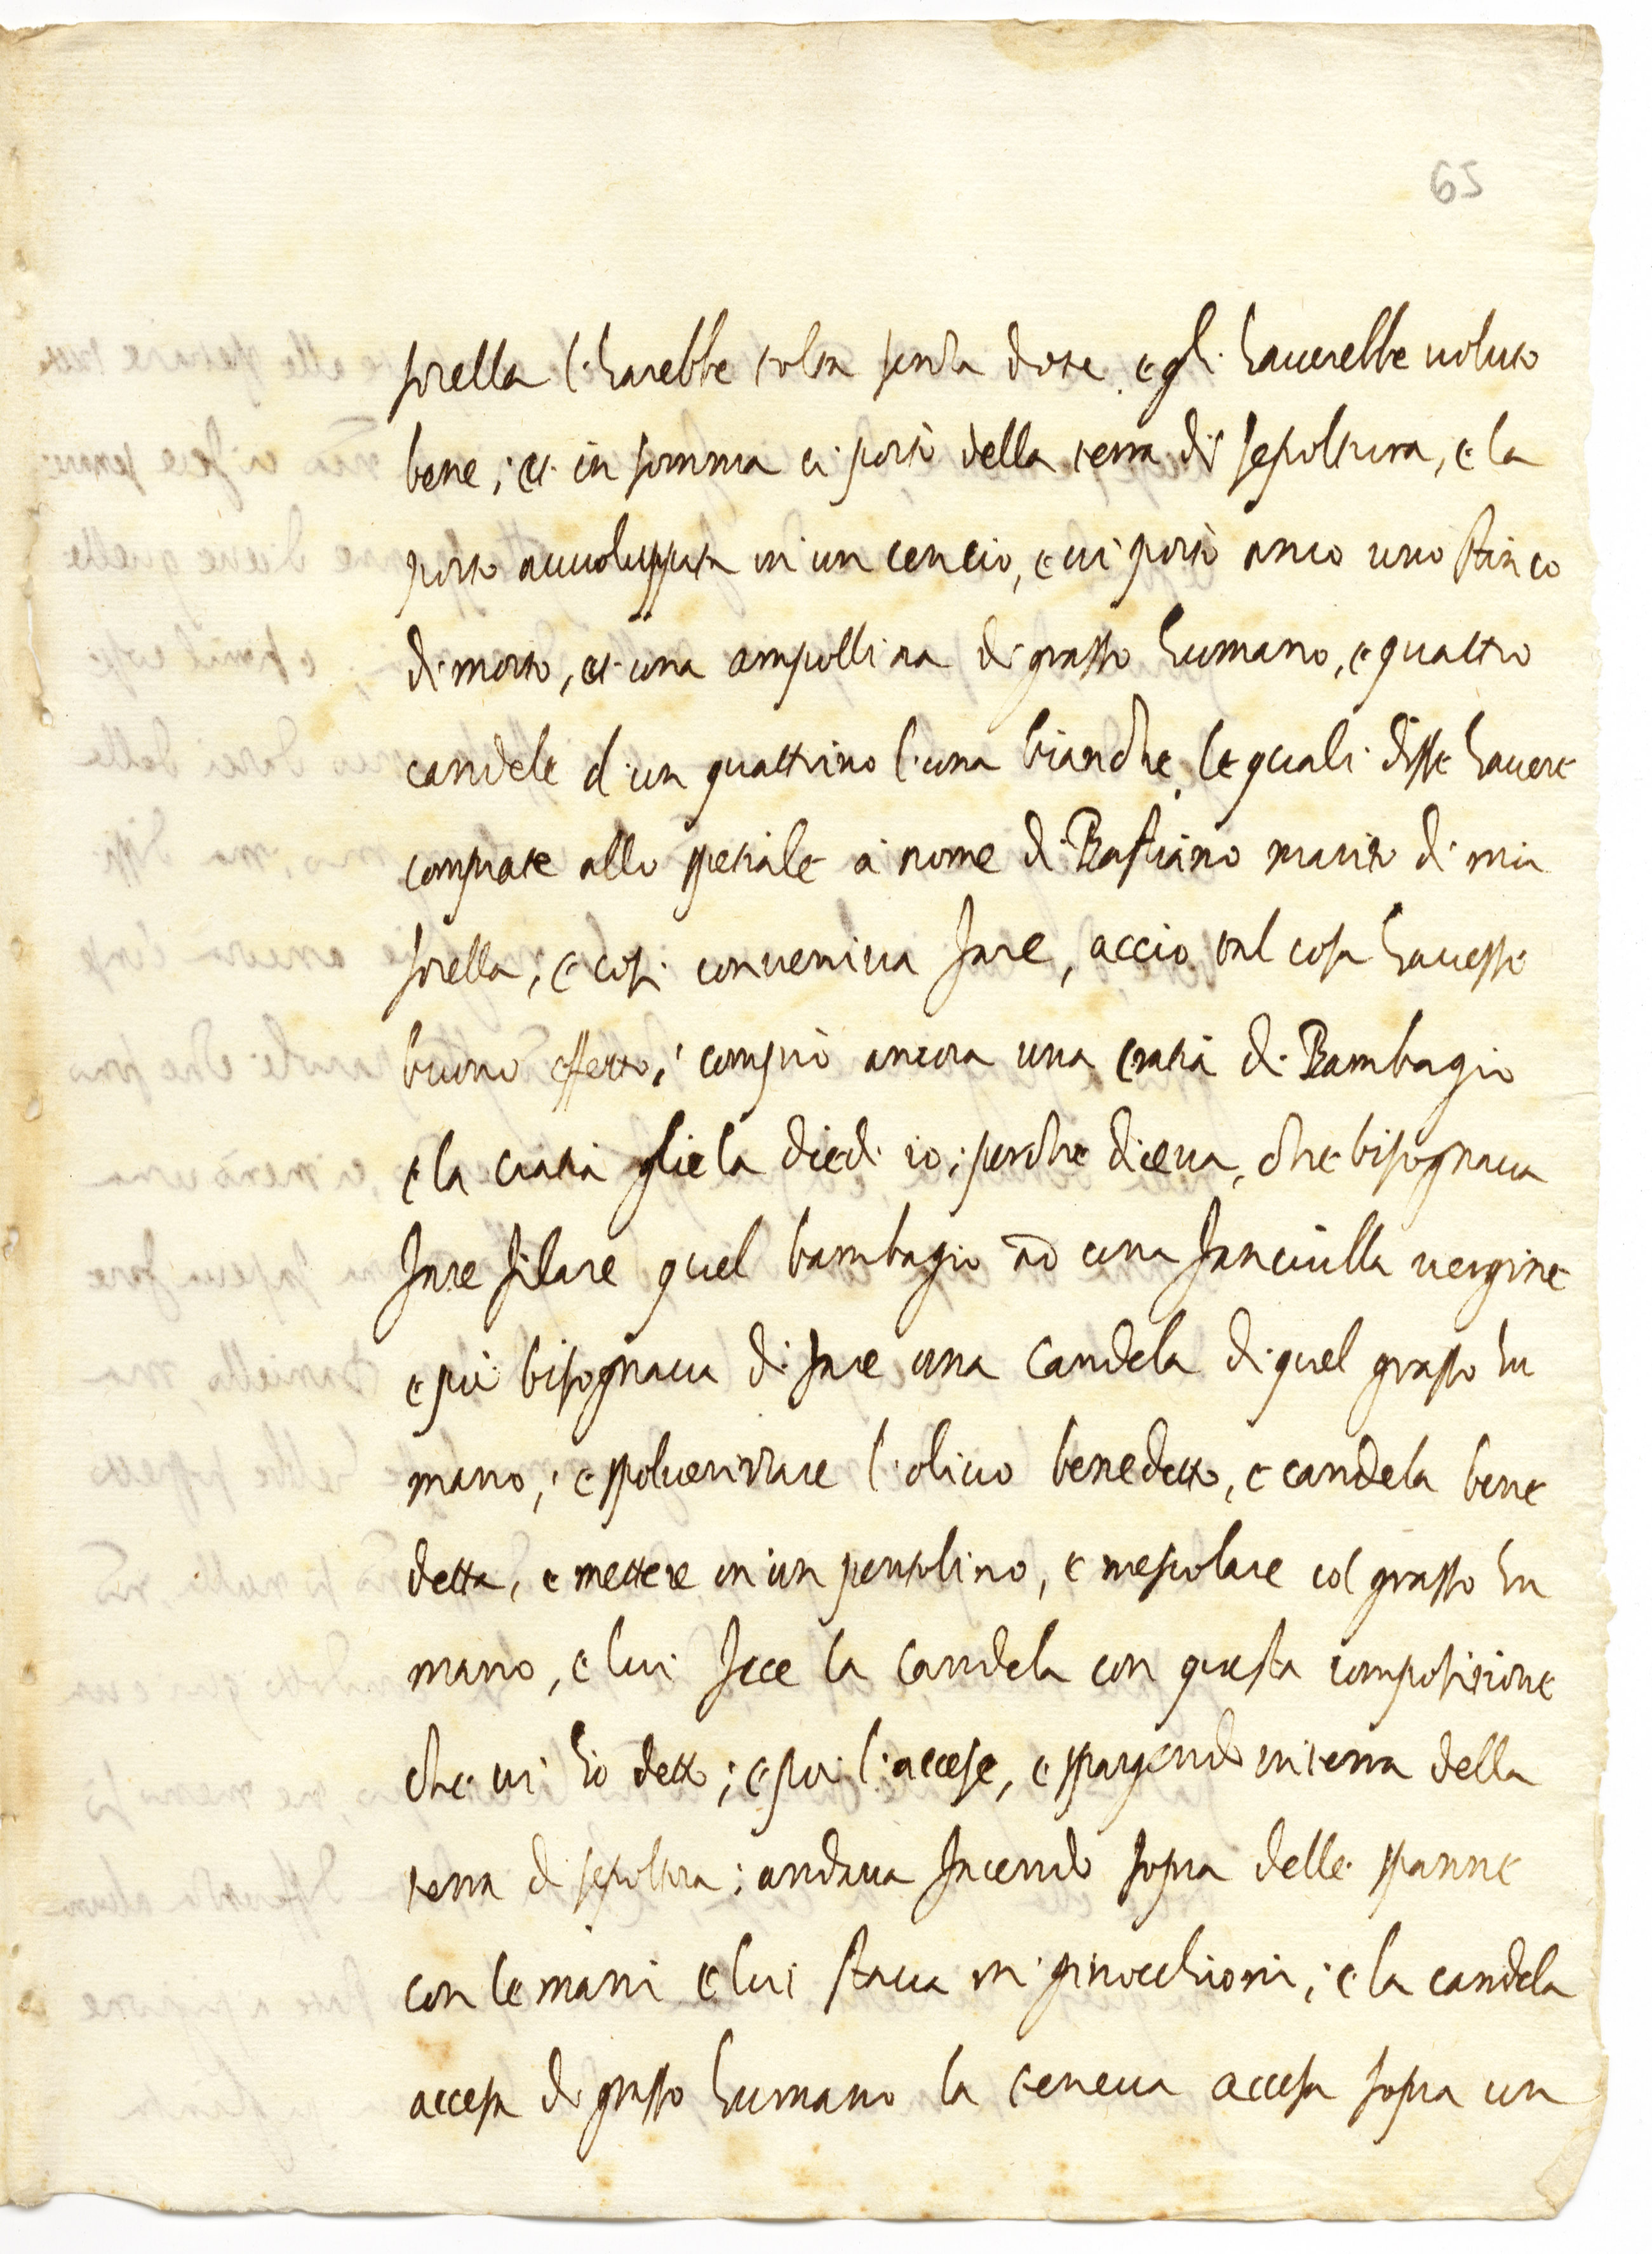 65
sorella l'harebbe tolta senza dote, e gli haverebbe voluto
bene; et in somma ci portò della terra di sepoltura, e la
portò avvoluppata in un cencio, e vi portò anco uno stinco
di morto, et una ampollina di grasso humano, e quattro
candele d'un quattrino l'una bianche, le quali disse havere
comprate allo spetiale a nome di Bastiano marito di mia
sorella, e così conveniva fare, acciò tal cosa havesse
buono effetto; comprò ancora una cratia di Bambagio
e la cratia gliela diedi io; perche diceva, che bisognava
fare filare quel bambagio ad una fanciulla vergine
e poi bisognava di fare una candela di quel grasso hu
mano; e spolverizzare l'olivo benedetto, e candela bene
detta, e mettere in un pentolino, e mescolare col grasso hu
mano, e lui fece la candela con questa compositione
che vi hò detto; e poi l'accese, e spargendo in terra della
terra di sepoltura; andava facendo sopra delle spanne
con le mani e lui stava in ginocchioni; e la candela
accesa di grasso humano la teneva accesa sopra un